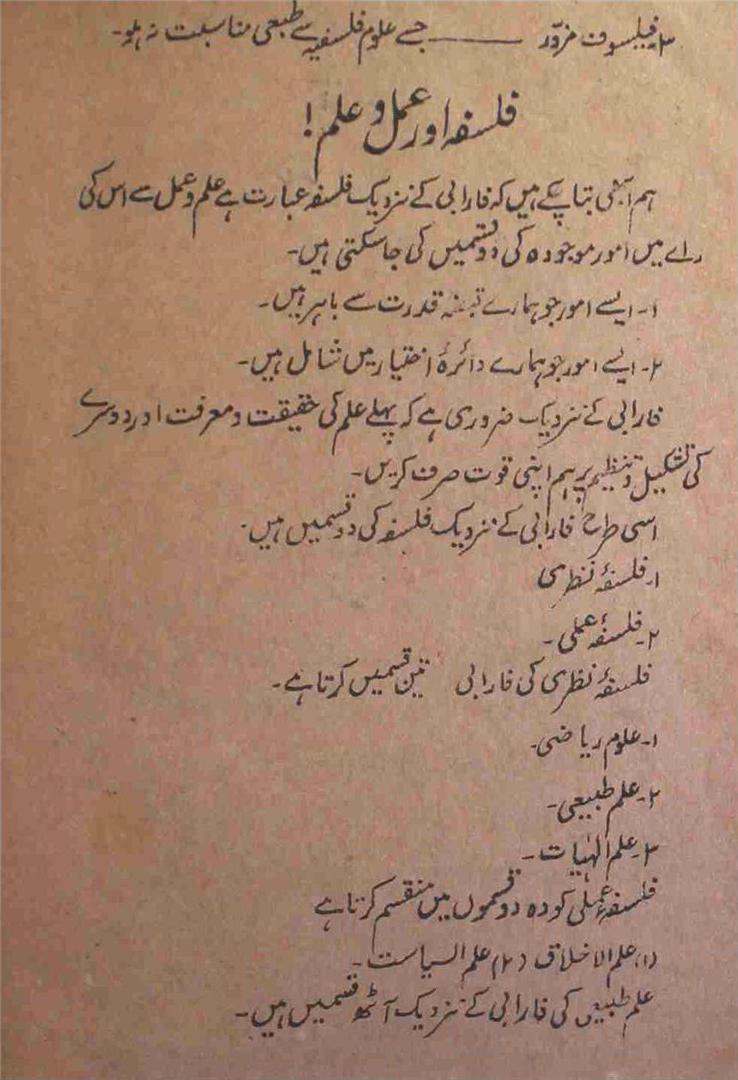 ۳۔ فیلسوف مزوّر ——— جسے علوم فلسفیہ سے طبعی مناسبت نہ ہو۔
فلسفہ اور عمل و علم!
ہم ابھی بتا چکے ہیں کہ فارابی کے نزدیک فلسفہ عبارت ہے علم و عمل سے اس کی
راے میں امور موجودہ کی دو قسمیں کی جاسکتی ہیں۔
۱۔ ایسے امور جو ہمارے قبضہ قدرت سے باہر ہیں۔
۲۔ ایسے امور جو ہمارے دائرۂ اختیار میں شامل ہیں۔
فارابی کے نزدیک ضروری ہے کہ پہلے علم کی حقیقت و معرفت اور دوسرے
کی تشکیل و تنظیم پر ہم اپنی قوت صرف کریں۔
اسی طرح فارابی کے نزدیک فلسفہ کی دو قسمیں ہیں۔
۱۔ فلسفۂ نظری
۲۔ فلسفۂ عملی۔
فلسفۂ نظری کی فارابی تین قسمیں کرتا ہے۔
۱۔ علوم ریاضی۔
۲۔ علم طبیعی۔
۳۔ علم الٰہیات۔
فلسفۂ عملی کو وہ دو قسموں میں منقسم کرتا ہے
(۱) علم الاخلاق (۲) علم السیاست۔
علم طبیعی کی فارابی کے نزدیک آٹھ قسمیں ہیں۔